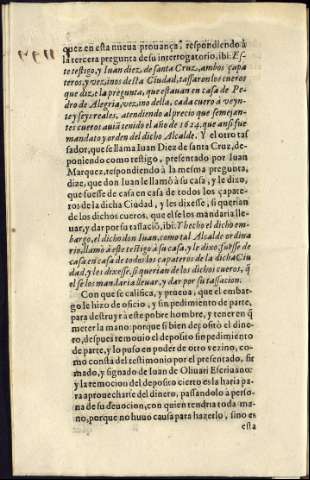 quez en esta nueua prouança, respondiendo à
la tercera pregunta de su interrogatorio, ibi: Es-
te testigo, y Iuan diez, de santa Cruz, ambos çapa
teros, y vezinos desta Ciudad, tassaron los cueros
que dize la pregunta, que estauan en casa de Pe-
dro de Alegria, vezino della, cada cuero à veyn-
te y seys reales, atendiendo al precio que semejan-
tes cueros auiã tenido el año de 1624. que ansi fue
mandato y orden del dicho Alcalde. Y el otro tas
sador, que se llama Iuan Diez de santa Cruz, de-
poniendo como testigo, presentado por Iuan
Marquez, respondiendo à la mesma pregunta,
dize, que don Iuan le llamò à su casa, y le dixo,
que fuesse de casa en casa de todos los çapate-
ros de la dicha Ciudad, y les dixesse, si querian
de los dichos cueros, que el se los mandaria lle-
uar, y dar por su tassaciõ, ibi: Y hecho el dicho em-
bargo, el dicho don Iuan, como tal Alcalde ordina
rio, llamò à este testigo à su casa, y le dixo, fuesse de
casa en casa de todos los çapateros de la dicha Ciu
dad, y les dixesse, si querian de los dichos cueros, q̃
el se los mandaria lleuar, y dar por su tassacion.
Con que se califica, y prueua, que el embar-
go le hizo de oficio, y sin pedimiento de parte,
para destruyr à este pobre hombre, y tener en q̃
meter la mano: porque si bien depositò el dine-
ro, despues remouio el deposito sin pedimiento
de parte, y lo puso en poder de otro vezino, co-
mo consta del testimonio por el presentado, fir
mado, y signado de Iuan de Oliuari Escriuano:
y la remocion del deposito cierto es la haria pa-
ra aprouecharse del dinero, passandolo à perso-
na de su deuocion, con quien tendria toda ma-
no, porque no huuo causa para hazerlo, sino es
esta